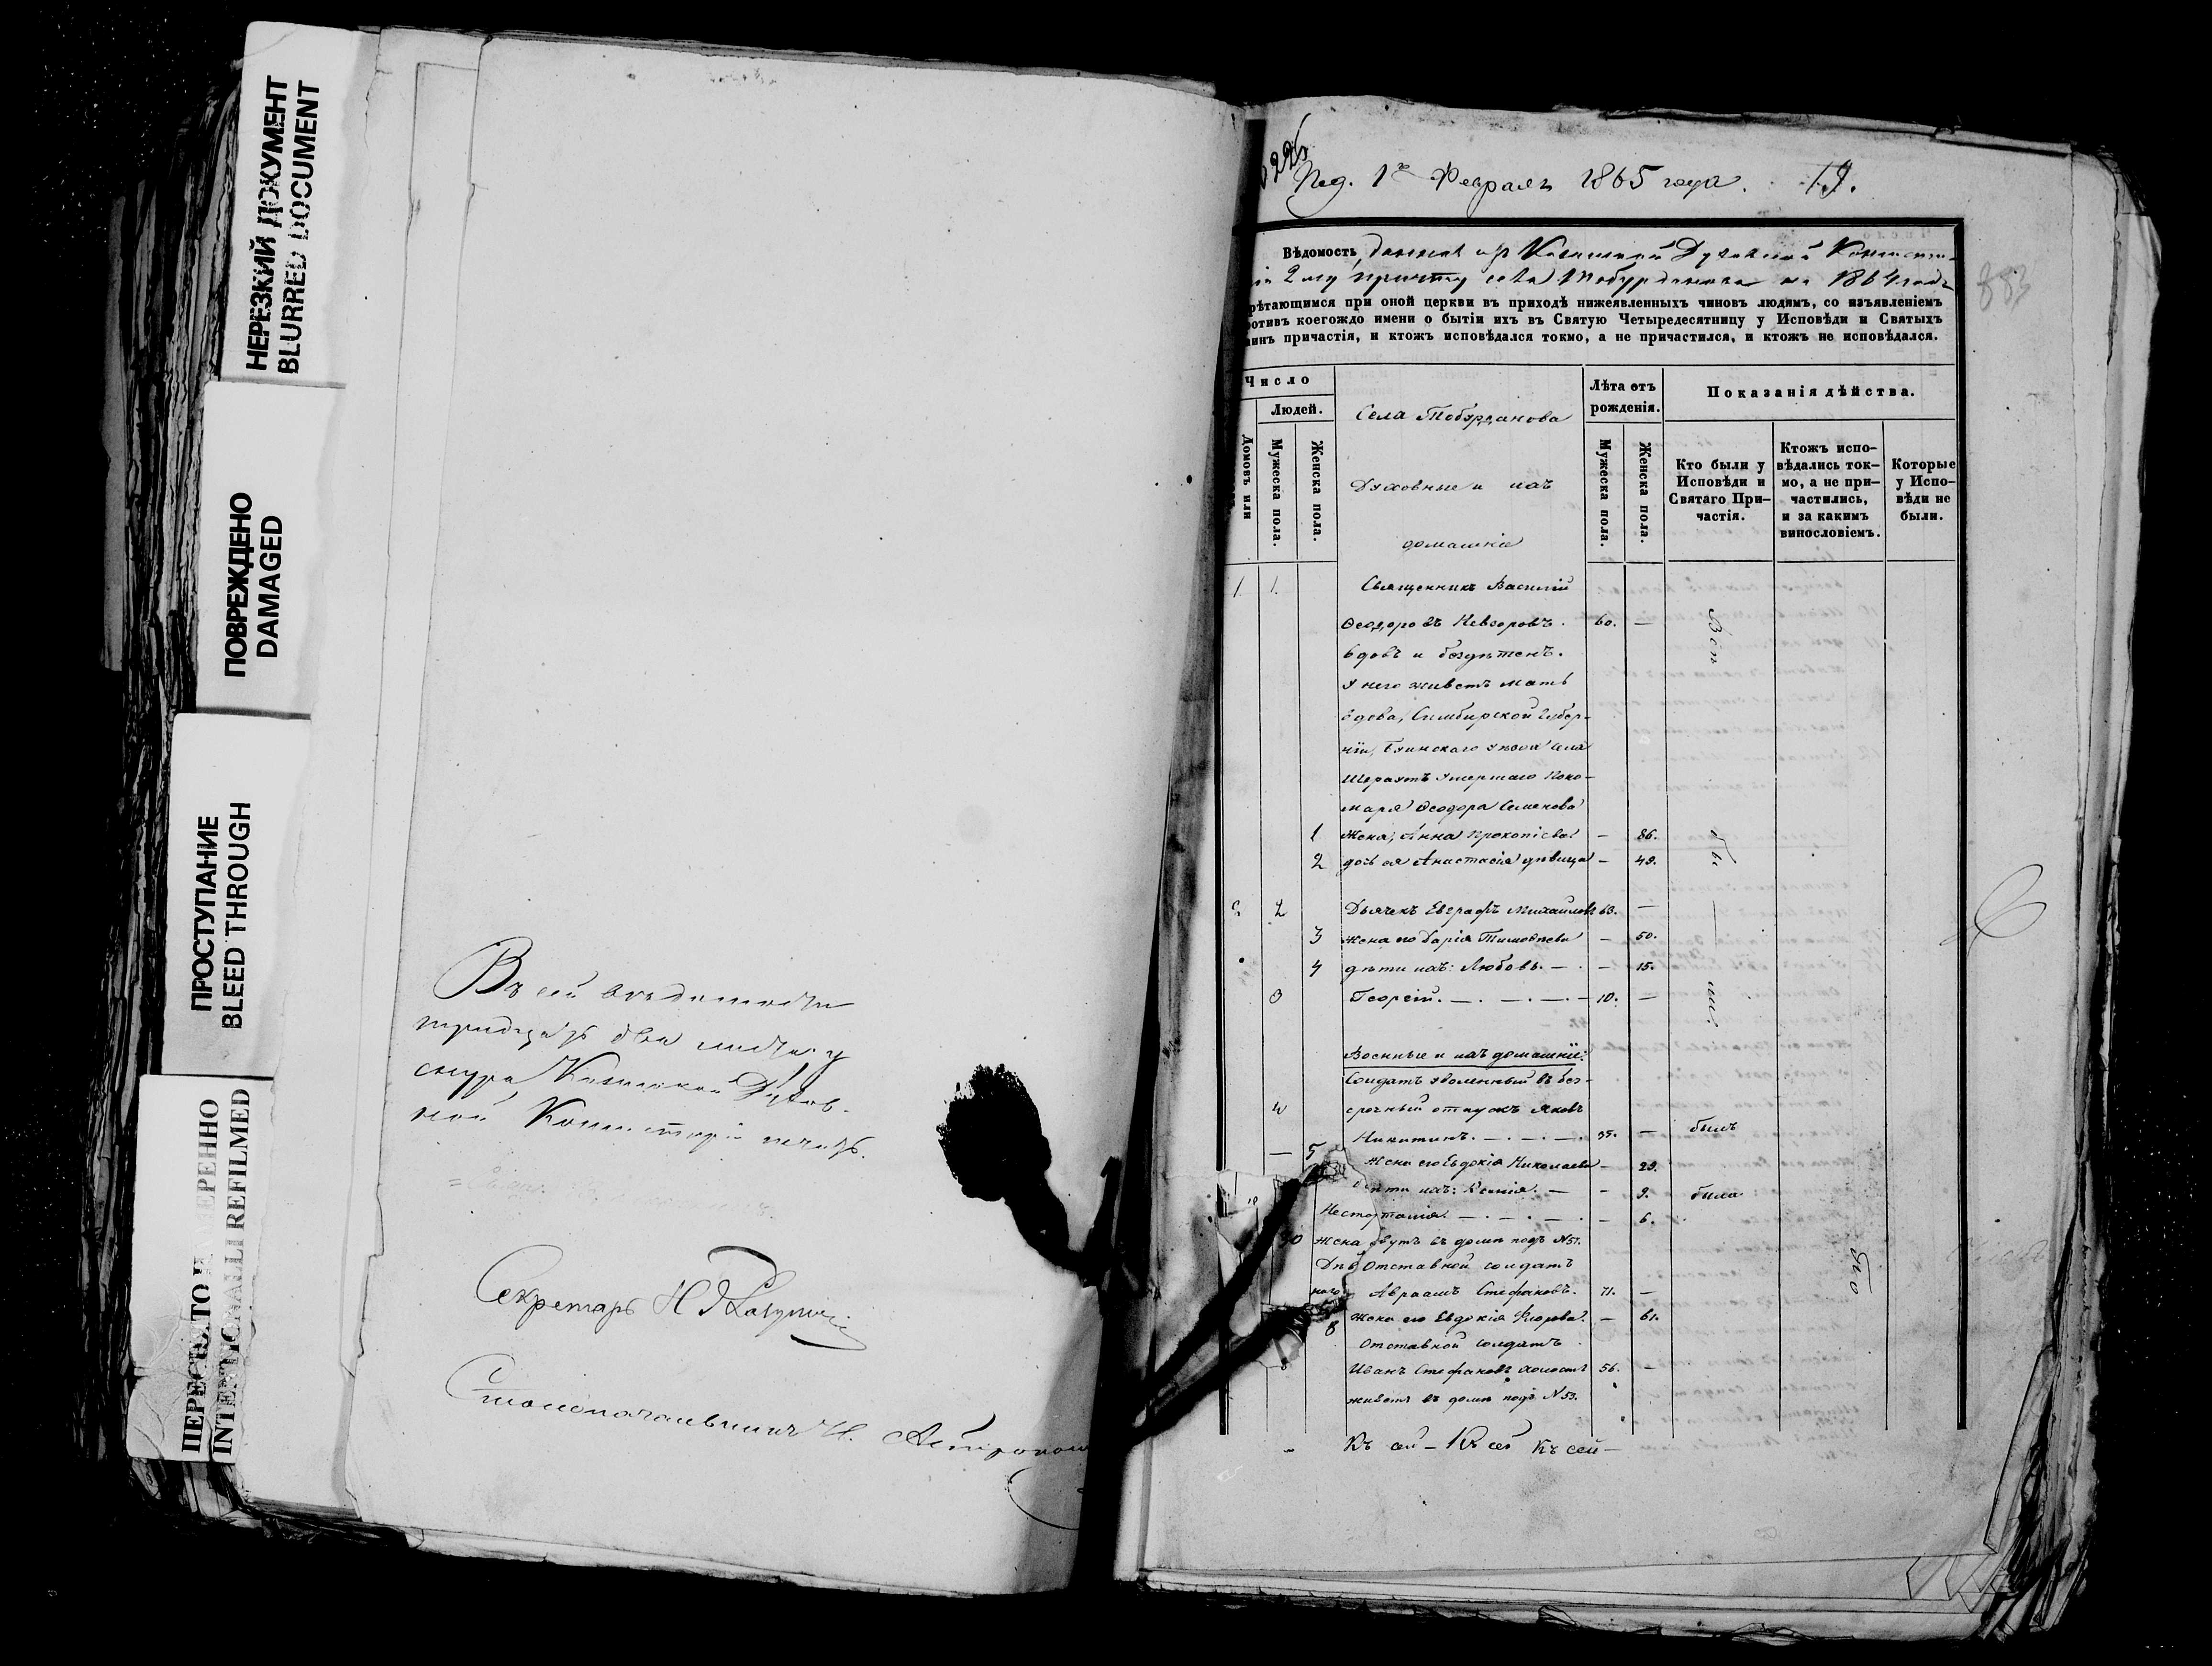 НЕРЕЗКИЙ ДОКУМЕНТ
BLURRED DOCUMENT
ПОВРЕЖДЕНО
DAMAGED
ПРОСТУПАНИЕ
BLEED THROUGH
ПЕРЕСНЯТО НАМЕРЕННО
INTENTIONALLI REFILMED
Въ сей вѣдомости
тридцать два листа у
снура Казанской Духов-
ной Консисторіи печать.
Секретарь Н
Столоначальникъ И.
Под. 1го Февраля 1865 года. 19.
883
Вѣдомость данная изъ Казанской Духовной Консисто-
ріи 2му причту села Тобурданова на 1864 годъ
рѣтающимся при оной церкви въ приходѣ нижеявленныхъ чиновъ людямъ, со изъявленіемъ
ротивъ коегождо имени о бытіи ихъ въ Святую Четыредесятницу у Исповѣди и Святыхъ
аинъ причастія, и ктожъ исповѣдался токмо, а не причастился, и ктожъ не исповѣдался.
Число
Людей.
Домовъ или
Мужеска пола.
Женска пола.
Села Тобурданова
Духовные и ихъ
домашніе
Лѣта отъ
рожденія.
Мужеска пола.
Женска пола.
Показанія дѣйства.
Кто были у
Исповѣди и
Святаго При-
частія.
Ктожъ испо-
вѣдались ток-
мо, а не при-
частились,
и за какимъ
винословіемъ.
Которые
у Испо-
вѣди не
были.
1 1. Священникъ Василій
Ѳеодоровъ Невзоровъ. 60. —
вдовъ и бездѣтенъ.
У него живетъ мать
вдова, Симбирской Губер-
ніи, Буинскаго уѣзда села
Шераутъ умершаго Поно-
маря Ѳеодора Семенова
1 жена, Анна Прокопіева — 86.
2 дочь ея Анастасія дѣвица — 49.
2 Дьячекъ Евграфъ Михайловъ 63. —
3 жена его Дарія Тимоѳеева — 50.
4 дѣти ихъ: Любовь. — — 15.
3 Георгій. — 10. —
Всѣ
бы
ли.
Военные и ихъ домашніе:
Солдатъ уволенный въ без-
4 срочный отпускъ Яковъ
Никитинъ. — 35. — былъ
— 5 Жена его Евдокія Николаева — 29.
дѣти ихъ: Ксенія. — — 9. была
— 6.
вутъ въ домѣ подъ N 51.
Отставной солдатъ
Авраамъ Стефановъ. 71. —
8 Жена его Евдокія — 61.
Отставной солдатъ
Иванъ Стефановъ холостъ 56. —
живетъ въ домѣ подъ N 53.
Къ сей — Къ сей Къ сей —